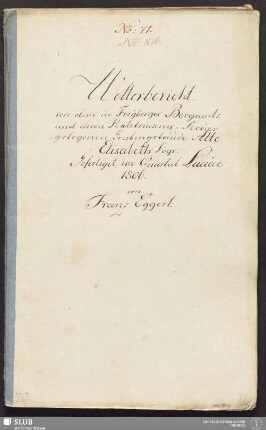 No: 71.
Wetterbericht
von dem in Freyberger Bergamts
und deren Halsbrückner Revier
gelegenen Grubengebäude Alte
Elisabeth Fdgr.
Gefertiget im Quartal Luciae
1806.
von
Franz Eggert.
SLUB